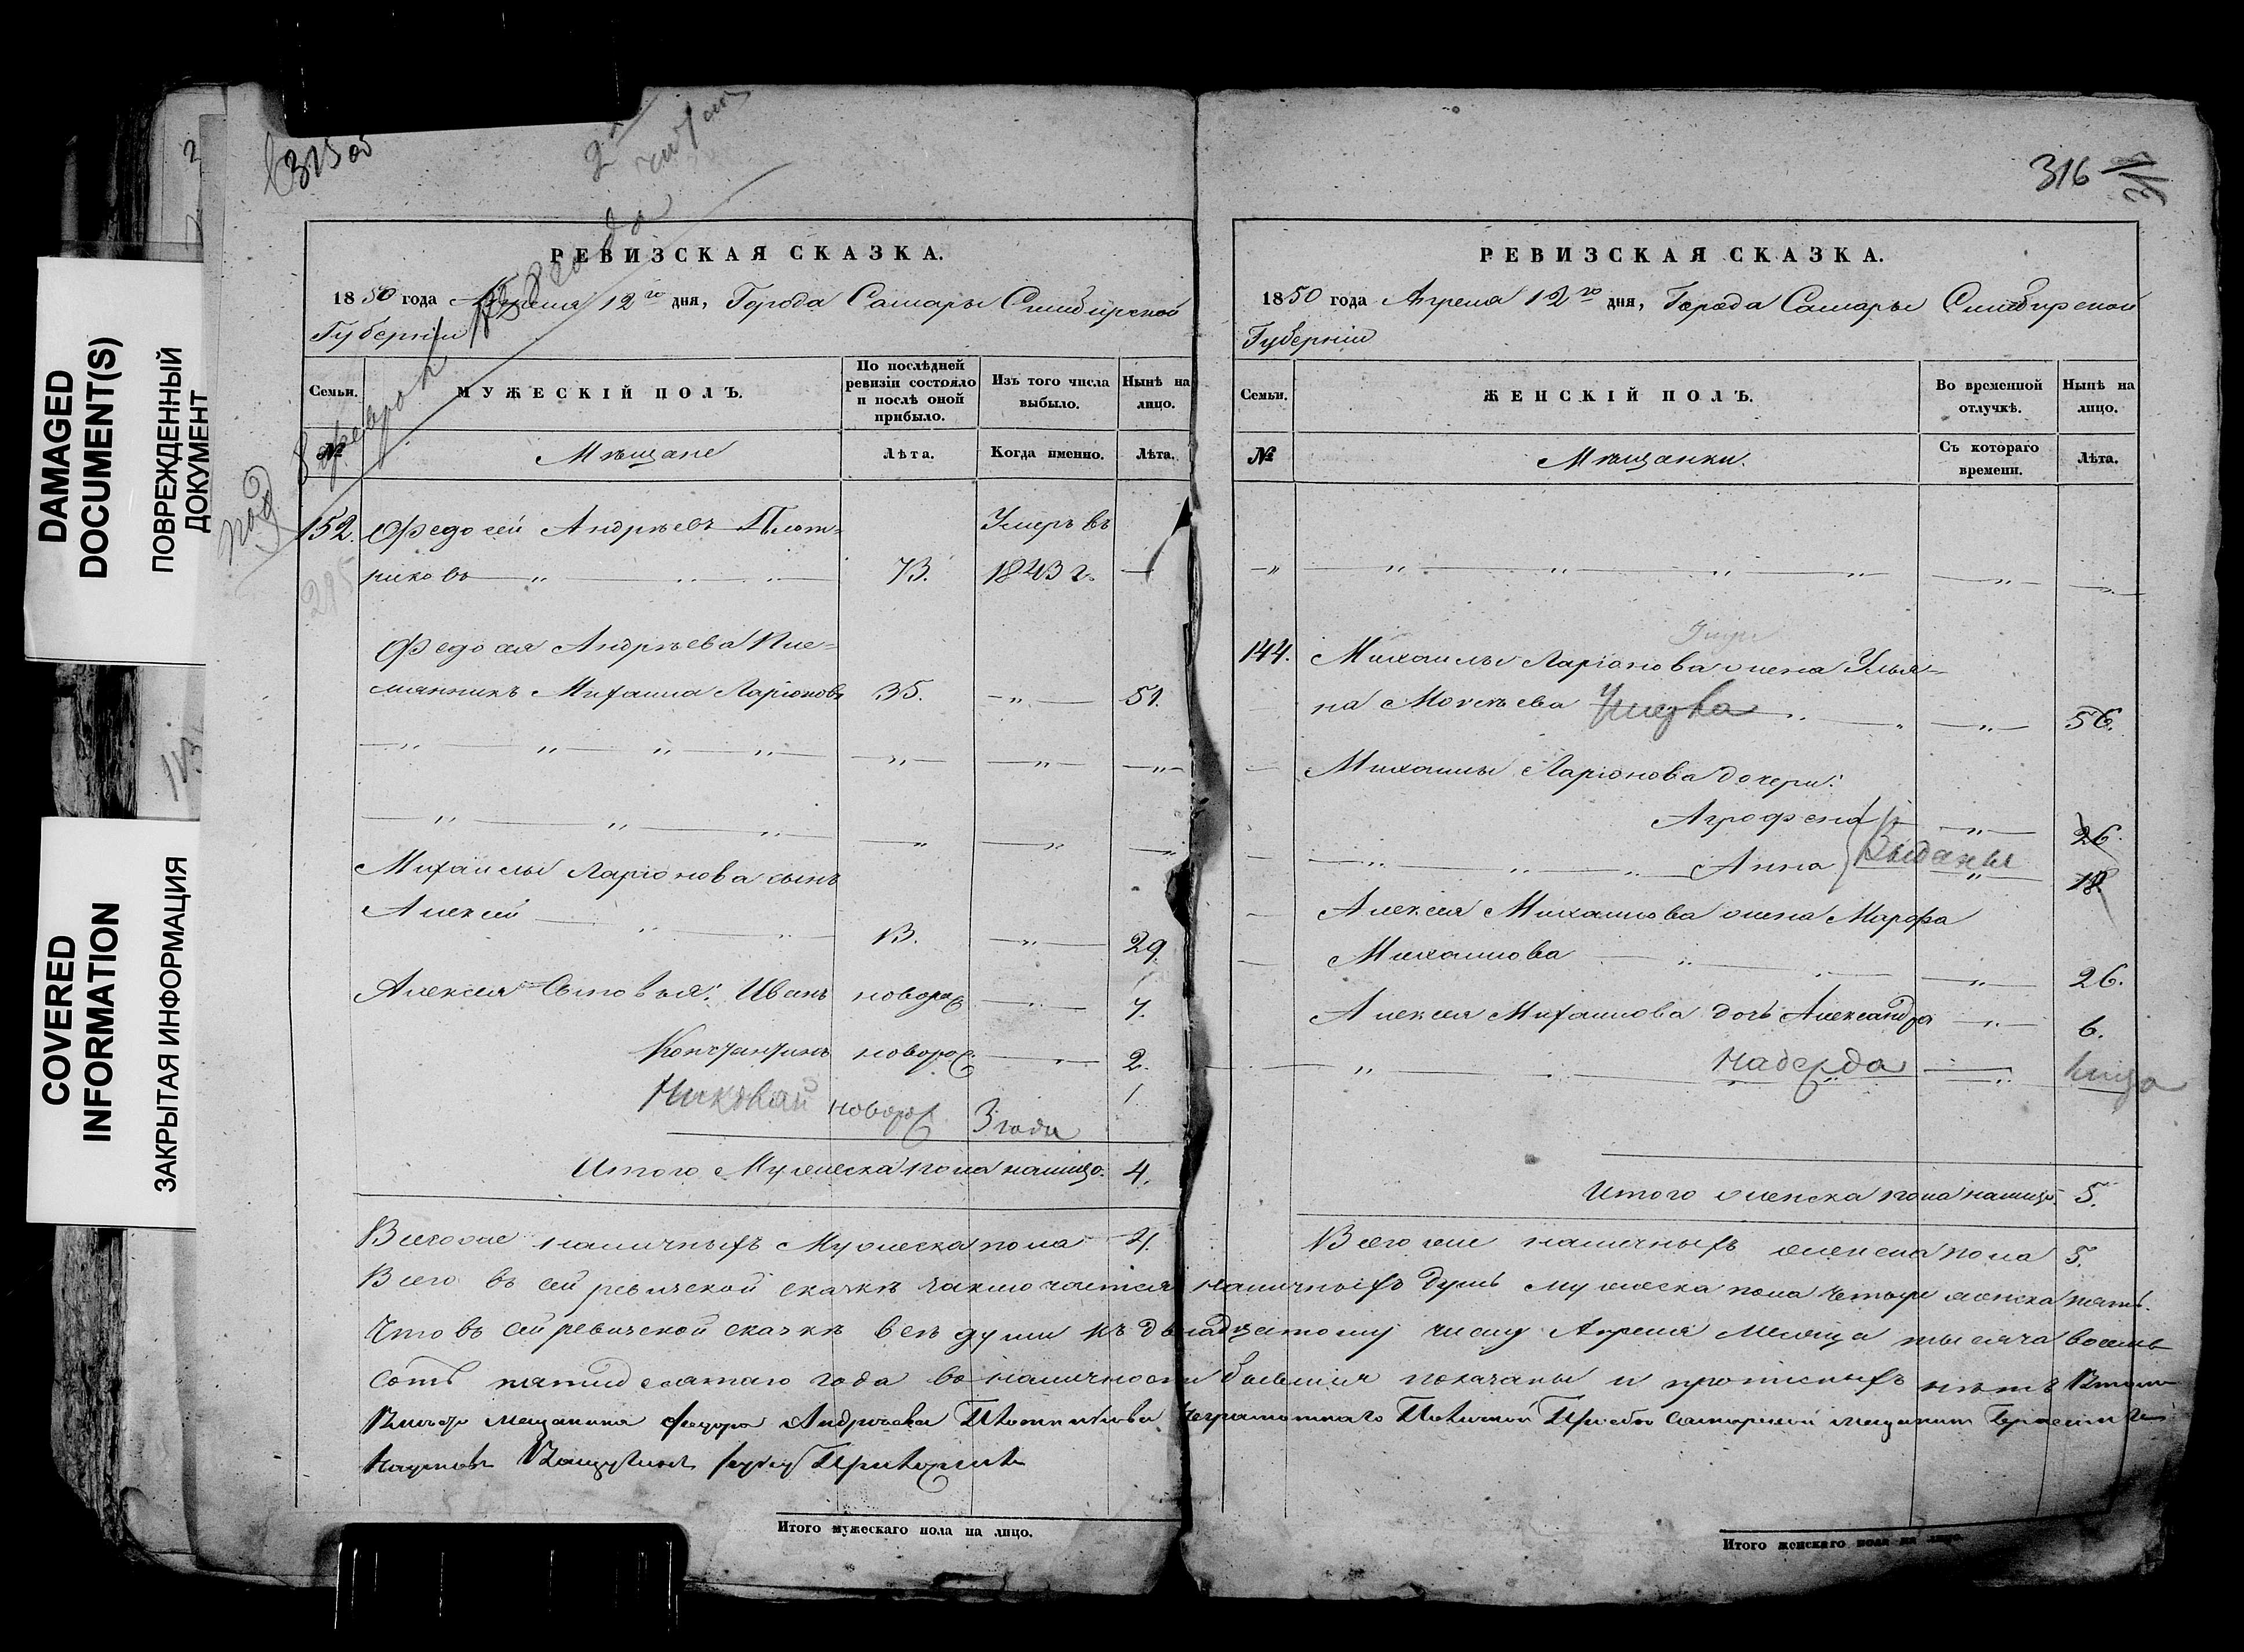 DAMAGED
DOCUMENT(S)
ПОВРЕЖДЕННЫЙ
ДОКУМЕНТ
COVERED
INFORMATION
ЗАКРЫТАЯ ИНФОРМАЦИЯ
315 об
РЕВИЗСКАЯ СКАЗКА.
1850 года Апреля 12го дня, Города Самары Симбирской
Губерніи
Семьи.
МУЖЕСКІЙ ПОЛЪ.
По послѣдней
ревизіи состояло
и послѣ оной
прибыло.
Изъ того числа
выбыло.
Нынѣ на
лицо.
№
Мѣщане
Лѣта.
Когда именно.
Лѣта.
152. Федосей Андрѣевъ Плот- Умеръ въ
никовъ 73. 1843 г.
285
Федосея Андрѣева пле-
мянникъ Михаила Ларіоновъ 35. 51.
Михаилы Ларіонова сынъ
Алексей 13. 29.
Алексея сыновья: Иванъ новорож 7.
Констянтинъ новорож 2.
Николай новорож 3 года
Итого Мужеска пола налицо. 4.
Всего же наличныхъ Мужеска пола 4.
316
РЕВИЗСКАЯ СКАЗКА.
1850 года Апреля 12го дня, Города Самары Симбирской
Губерніи
Семьи.
ЖЕНСКІЙ ПОЛЪ.
Во временной
отлучкѣ.
Нынѣ на
лицо.
№
Мѣщанки.
Съ котораго
времени.
Лѣта.
144. Михаилы Ларіонова жена Улья-
на Моисѣева Умерла 56.
Михаилы Ларіонова дочери:
Агрофена 26.
Анна Выданы 18
Алексея Михаилова жена Марфа
Михаилова 26.
Алексея Михаилова дочь Александра 6.
Надежда
Итого женска пола налицо 5.
Всего же наличныхъ женска пола 5.
Всего въ сей ревизской сказкѣ заключается наличныхъ душъ мужеска пола четыре женска пять.
Что въ сей ревизской сказкѣ всѣ души къ двенадцатому числу Апреля месяца тысяча восемь
сотъ пятидесятаго года въ наличности бывшія показаны и прописныхъ нѣтъ
мещанина Андреева неграмотнаго самарской мещанин
Наумовъ руку Приложилъ
Итого мужескаго пола на лицо.
Итого женскаго пола на лицо.